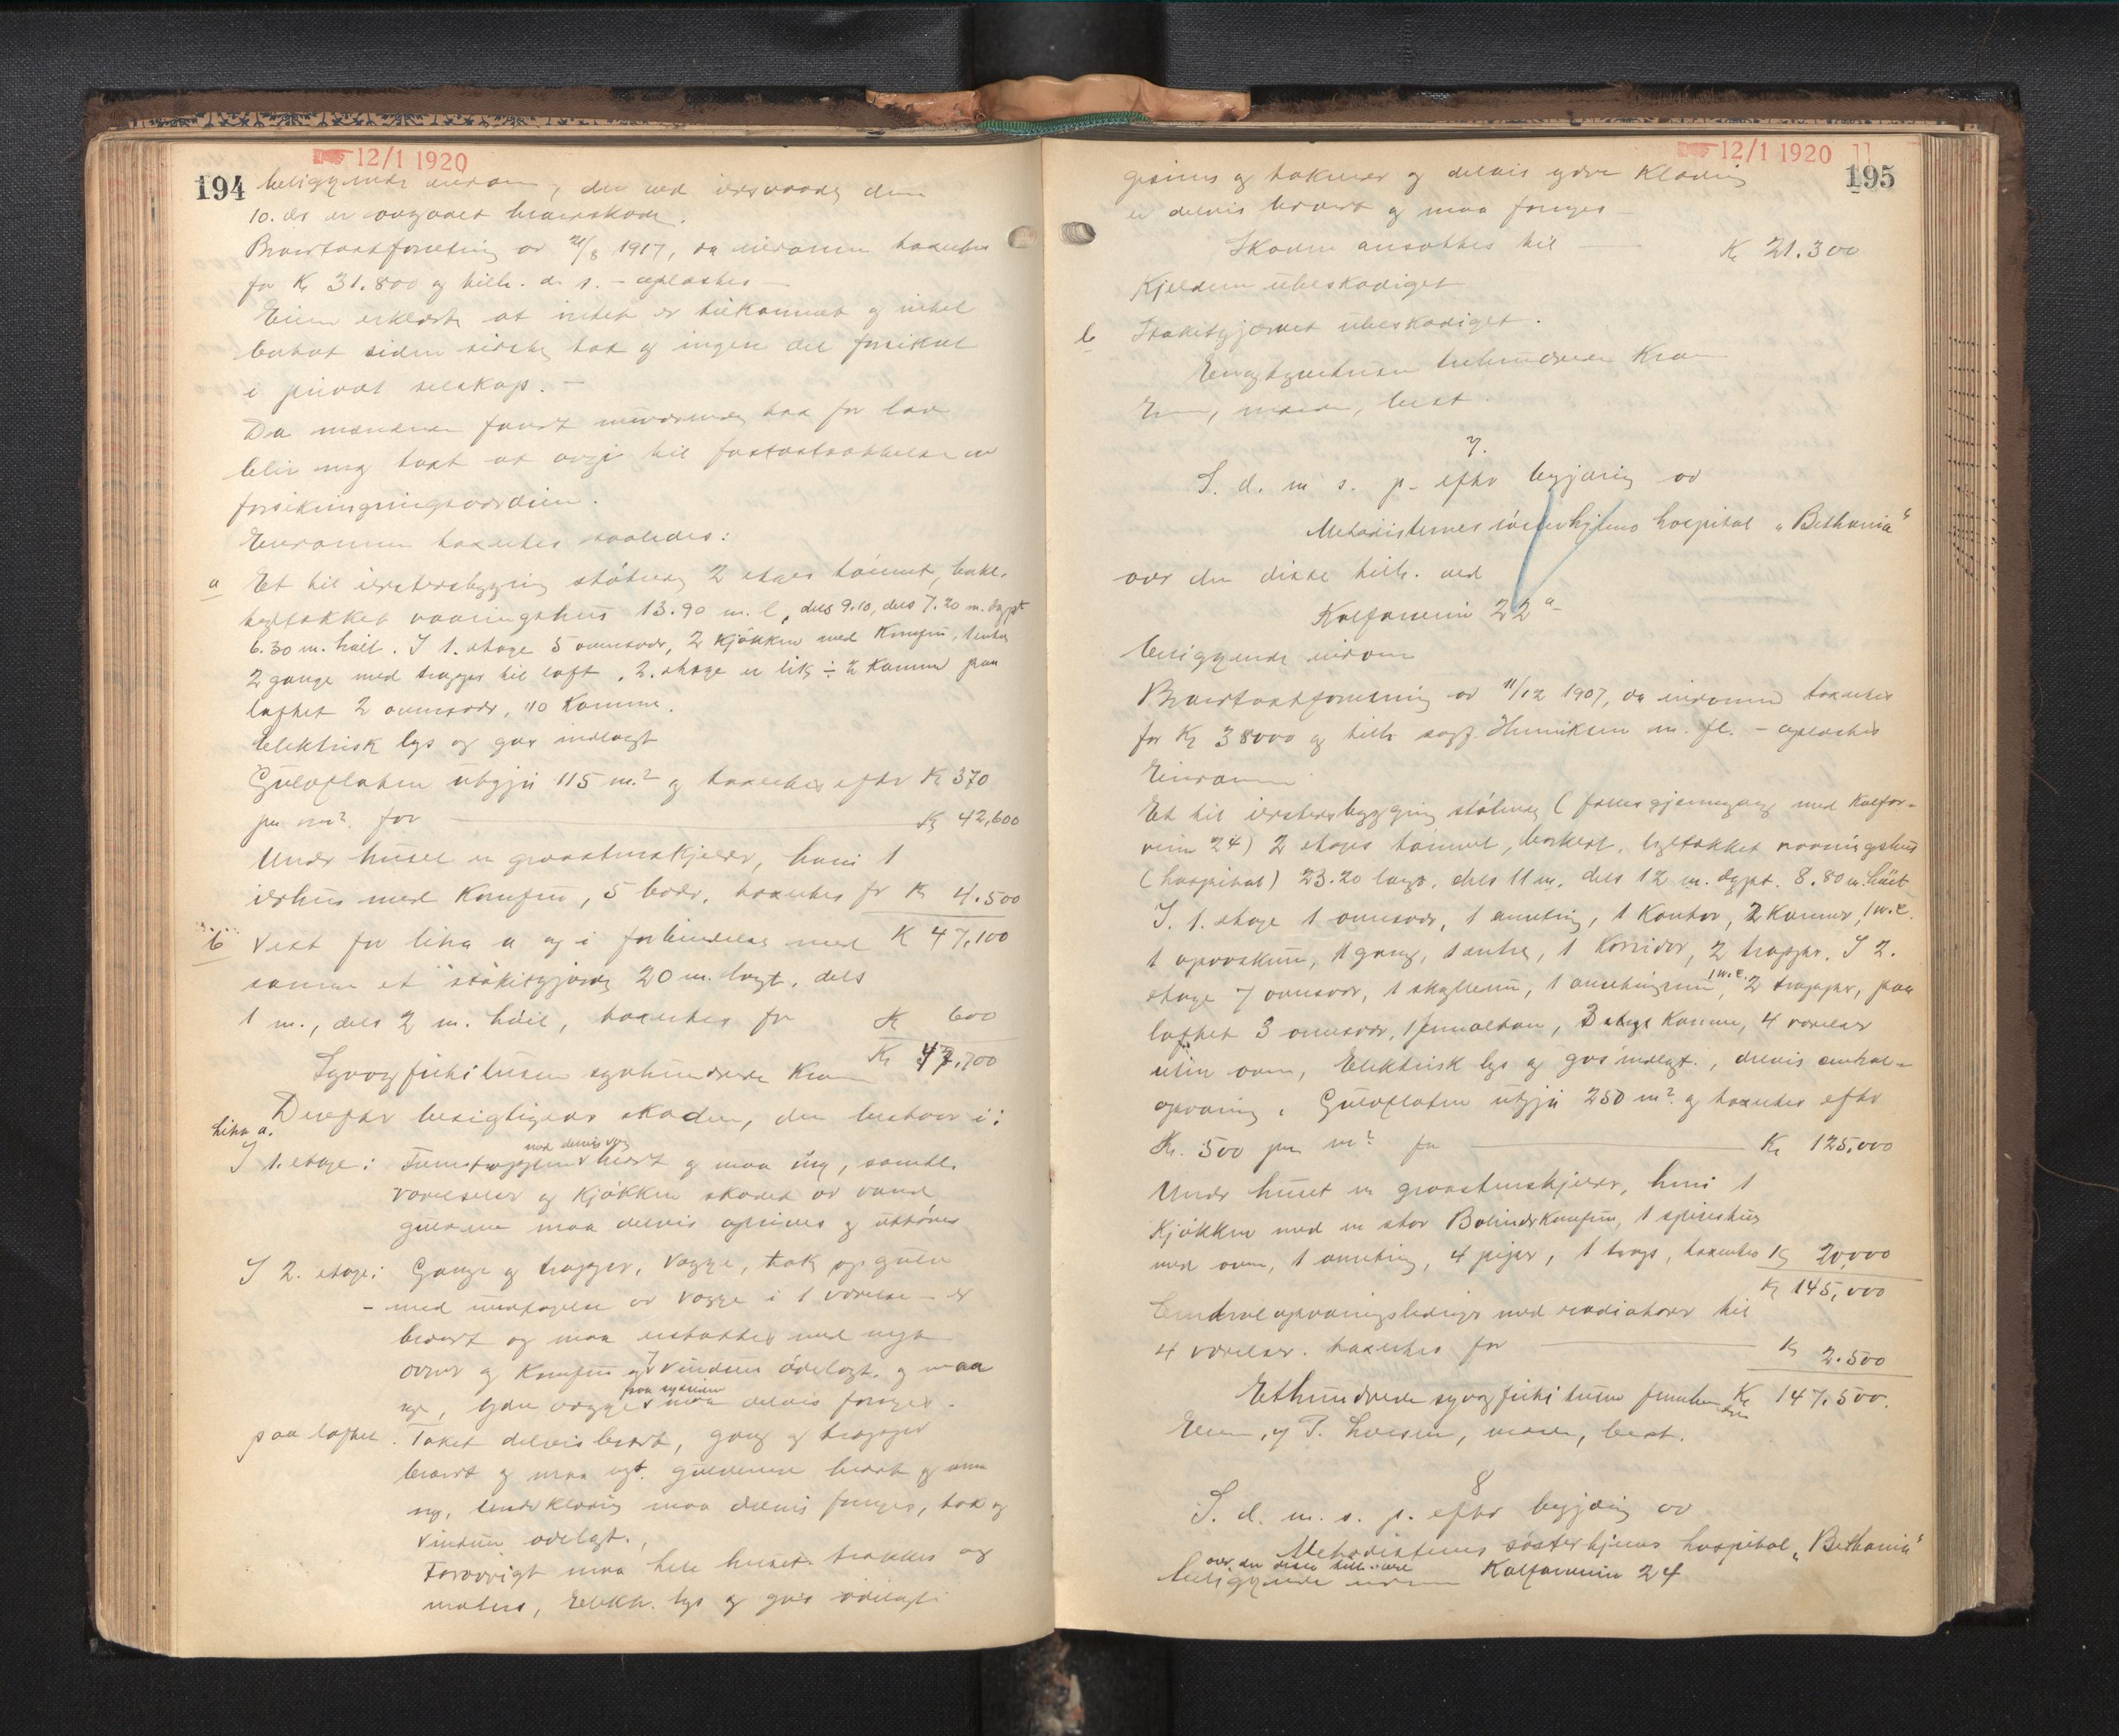 12/1 1920
194
beliggende eiendom, der ved ildsvaade den
10. ds er overgaaet brandskade.
Brandtaxtforretning av 21/8 1917, da eiendommen taxertes
for Kr 31.800 og tilh. d. s. - oplæstes -
Eieren erklærte at intet er tilkommet og intet
borttat siden sidste tax og ingen del forsikret
i privat selskap. -
Da mændene fandt nuværende tax for lav
blir ny taxt at avgi til fastsættelse av
forsikringsværdien.
Eiendommen taxertes saaledes:
a Et til ildstersbygning støtende 2 etages tømret, bordkl.
tegltækket vaaningshus 13.90 m. l., dels 9.10, dels 7.20 m. dypt
6.30 m. høit. I 1. etage 5 ovnsvær, 2 kjøkken med komfur, 1 entre
2 gange med trapper til loft, 2. etage er lik ÷ 2 kammer paa
loftet 2 ovnsvær, 10 kammer.
Elektrisk lys og gas indlagt
Gulvflaten utgjør 115 m.² og taxertes efter Kr 370
pr m². for Kr 42,600
Under huset er graastenskjelder, hvori 1
ildhus med komfur, 5 boder, taxertes for Kr 4.500
b Vest for litra a og i forbindelse med Kr 47,100
samme et stakitgjærde 20 m. langt, dels
1 m., dels 2 m. høit, taxertes for Kr 600
Kr 47,700
Syvogfirtitusen syvhundrede Kroner
Derefter besigtigedes skaden, der bestaar i:
Litra a.
I 1. etage: Fremtrappen med delvis væg brændt og maa ny, samtl.
værelser og kjøkken skadet av vand
gulvene maa delvis oprives og uttørres
I 2. etage: Gange og trapper, vægge, tak og gulv
- med undtagelse av vægge i 1 værelse - er
brændt og maa erstattes med nyt
ovner og komfur og 7 vinduer ødelagt og maa
nye, ydre vægge paa nysiden maa delvis fornyes.
paa loftet. Taket delvis brændt, gang og trapper
brændt og maa nyt. gulvene brændt og maa
ny, bordklædning maa delvis fornyes, tak og
vinduer ødelagt.
Forøvrigt maa hele huset trækkes og
males, Elektr. lys og gas ødelagt.
12/1 1920
195
gesims og takrender og delvis ydre klædning
er delvis brændt og maa fornyes -
Skaden ansattes til Kr 21.300
Kjelderen ubeskadiget
b Stakitgjærdet ubeskadiget.
Enogtyvetusen trehundrede Kroner
Eier, mænd, best.
7.
S. d. m s. p. efter begjæring av
Metodisternes søsterhjems hospital „Bethania“
over den disse tilh. ved
Kalfarveien 22 a
beliggende eiendom
Brandtaxtforretning av 11/12 1907, da eiendommen taxertes
for Kr 38000 og tilh sagf. Henriksen m. fl. - oplæstes
Eiendommen
Et til ildstersbygning støtende (fælles gjennemgang med Kalfar-
veien 24) 2 etages tømret, bordkl. tegltækket vaaningshus
(hospital) 23.20 langt, dels 11 m. dels 12 m. dypt. 8.80 m. høit
I. 1. etage 1 ovnsvær, 1 anretning, 1 kontor, 2 kammer, 1 w.c.
1 opvaskrum, 1 gang, 1 entre, 1 korridor, 2 trapper. I 2.
etage 7 ovnsvær, 1 skyllerum, 1 anretningsrum, 1 w.c. 2 trapper, paa
loftet 3 ovnsvær, 1 altan, 3 kammer, 4 værelser
uten ovn, Elektrisk lys og gas indlagt, delvis central-
opvarmning. Gulvflaten utgjør 250 m² og taxertes efter
Kr. 500 pr m² for Kr 125,000
Under huset er graastenskjelder, hvori 1
kjøkken med en stor Bolinderkomfur, 1 spisestue
med ovn, 1 anretning, 4 piger, 1 trap, taxertes Kr 20,000
Kr 145,000
Centralopvarmningsledninger med radiatorer til
4 værelser. taxertes for Kr 2.500
Ethundrede syvogfirtitusen femhundrede Kr 147.500.
Eier, v/ P. Larsen, mænd, best.
8
S. d. m. s. p. efter begjæring av
Methodisternes søsterhjems hospital „Bethania“
over den disse tilh. ved
beliggende eiendom Kalfarveien 24